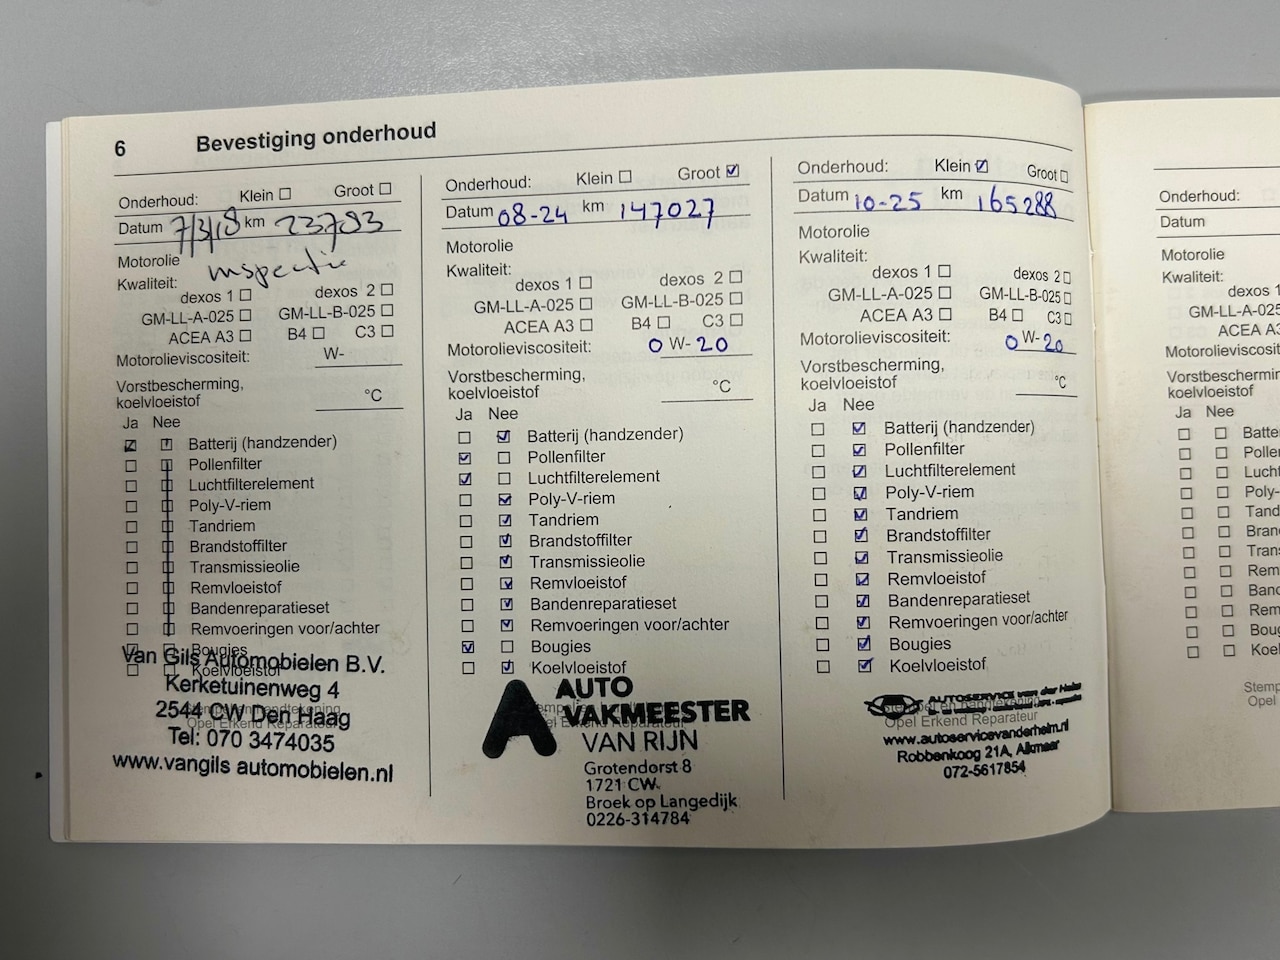 6 Bevestiging onderhoud
Onderhoud: Klein Groot
Datum 7/3/18 km 23783
Motorolie inspectie
Kwaliteit:
dexos 1 dexos 2
GM-LL-A-025 GM-LL-B-025
ACEA A3 B4 C3
Motorolieviscositeit: W-
Vorstbescherming,
koelvloeistof °C
Ja Nee
Batterij (handzender)
Pollenfilter
Luchtfilterelement
Poly-V-riem
Tandriem
Brandstoffilter
Transmissieolie
Remvloeistof
Bandenreparatieset
Remvoeringen voor/achter
Bougies
Koelvloeistof
Van Gils Automobielen B.V.
Kerketuinenweg 4
2544 CW Den Haag
Opel Erkend Reparateur
Tel: 070 3474035
www.vangils automobielen.nl
Onderhoud: Klein Groot
Datum 08-24 km 147027
Motorolie
Kwaliteit:
dexos 1 dexos 2
GM-LL-A-025 GM-LL-B-025
ACEA A3 B4 C3
Motorolieviscositeit: 0 W- 20
Vorstbescherming,
koelvloeistof °C
Ja Nee
Batterij (handzender)
Pollenfilter
Luchtfilterelement
Poly-V-riem
Tandriem
Brandstoffilter
Transmissieolie
Remvloeistof
Bandenreparatieset
Remvoeringen voor/achter
Bougies
Koelvloeistof
A AUTO
VAKMEESTER
VAN RIJN
Grotendorst 8
1721 CW
Broek op Langedijk
0226-314784
Onderhoud: Klein Groot
Datum 10-25 km 165288
Motorolie
Kwaliteit:
dexos 1 dexos 2
GM-LL-A-025 GM-LL-B-025
ACEA A3 B4 C3
Motorolieviscositeit: 0 W- 20
Vorstbescherming,
koelvloeistof °C
Ja Nee
Batterij (handzender)
Pollenfilter
Luchtfilterelement
Poly-V-riem
Tandriem
Brandstoffilter
Transmissieolie
Remvloeistof
Bandenreparatieset
Remvoeringen voor/achter
Bougies
Koelvloeistof
AUTOSERVICE van der Helm
Opel Erkend Reparateur
www.autoservicevanderhelm.nl
Robbenkoog 21A, Alkmaar
072-5617854
Onderhoud:
Datum
Motorolie
Kwaliteit:
dexos 1
GM-LL-A-025
ACEA A3
Motorolieviscosit
Vorstbeschermin
koelvloeistof
Ja Nee
Batte
Pollen
Lucht
Poly-
Tand
Bran
Tran
Rem
Banc
Rem
Boug
Koel
Stemp
Opel